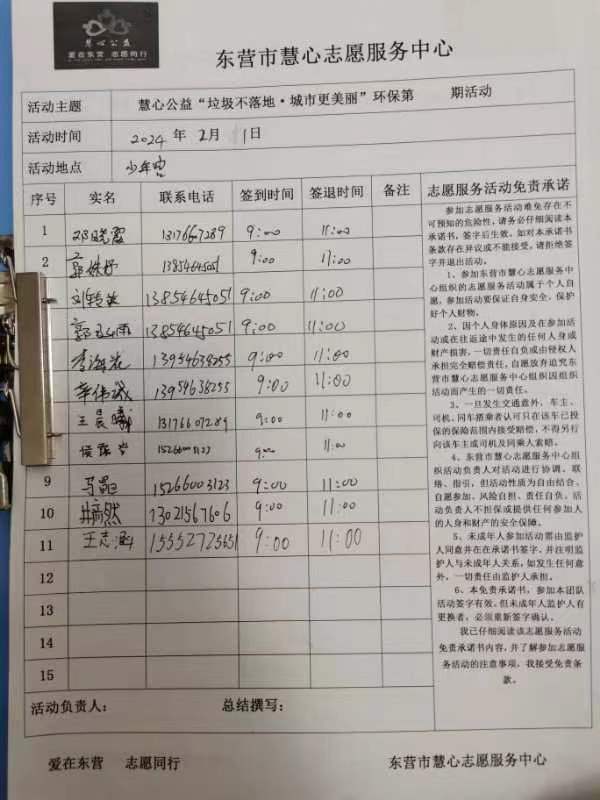 慧心公益
爱在东营 志愿同行
东营市慧心志愿服务中心
活动主题 慧心公益“垃圾不落地·城市更美丽”环保第 期活动
活动时间 2024 年 2 月 11 日
活动地点 少年宫
序号 实名 联系电话 签到时间 签退时间 备注
1 邓晓霞 13176607289 9:00 11:00
2 13854645051 9:00 11:00
13854645051 9:00 11:00
13854645051 9:00 11:00
李海花 13954638255 9:00 11:00
李伟诚 13954638255 9:00 11:00
王晨曦 13176607289 9:00 11:00
15266003123 9:00 11:00
9 15266003123 9:00 11:00
10 13021567606 9:00 11:00
11 王志涵 15552725651 9:00 11:00
12
13
14
15
活动负责人: 总结撰写:
志愿服务活动免责承诺
参加志愿服务活动难免存在不
可预知的危险性,请务必仔细阅读本
承诺书,签字后生效。如对本承诺书
条款存在异议或不能接受,请拒绝签
字并退出活动。
1、参加东营市慧心志愿服务中
心组织的志愿服务活动属于个人自
愿。参加活动要保证自身安全,保护
好个人财物。
2、因个人身体原因及在参加活
动或在往返途中发生的任何人身或
财产损害,一切责任自负或由侵权人
承担完全赔偿责任,自愿放弃追究东
营市慧心志愿服务中心组织因组织
活动而产生的一切责任。
3、一旦发生交通意外,车主、
司机、同车搭乘者认可只在该车已投
保的保险范围内接受赔偿,不得另行
向该车主或司机及同乘人索赔。
4、东营市慧心志愿服务中心组
织活动负责人对活动进行协调、联
络、指引,但活动性质为自由结合、
自愿参加、风险自担、责任自负。活
动负责人不担保或提供任何参加人
的人身和财产的安全保障。
5、未成年人参加活动需由监护
人同意并在在承诺书签字,并注明监
护人与未成年人关系,如发生任何意
外,一切责任由监护人承担。
6、本免责承诺书,参加本团队
活动签字有效,但未成年人监护人有
更换者,必须重新签字确认。
我已仔细阅读该志愿服务活动
免责承诺书内容,并了解参加志愿服
务活动的注意事项,我接受免责条
款。
爱在东营 志愿同行 东营市慧心志愿服务中心